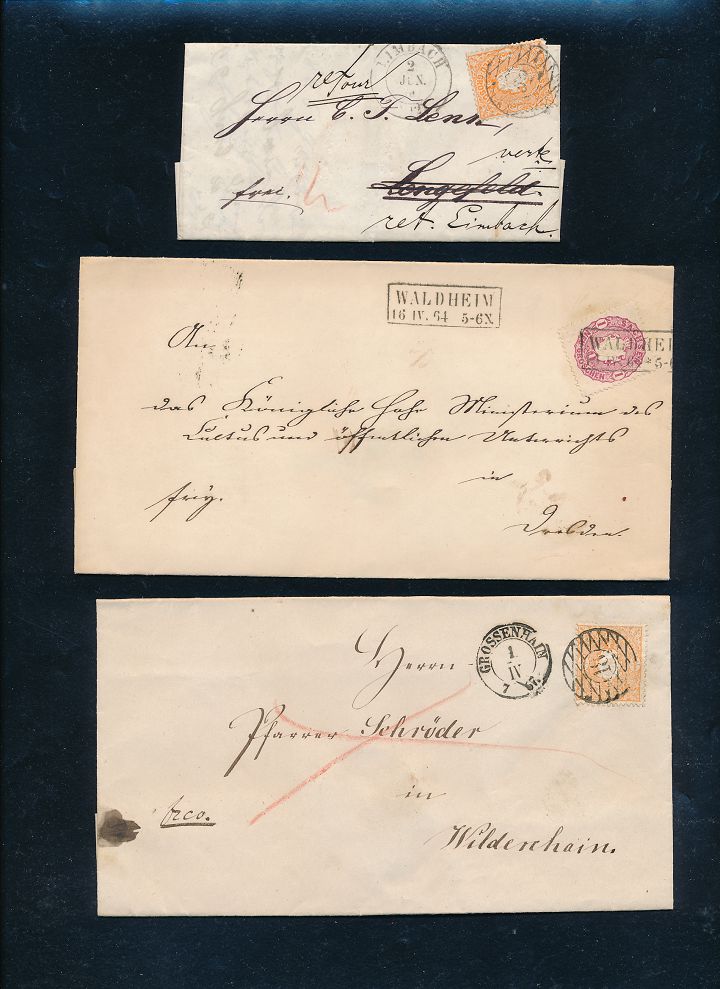 LIMBACH
2
JUN.
retour
Herrn C. F. Lenk,
verte
Lengefeld.
frei.
ret. Limbach.
WALDHEIM
16 IV. 64 5-6N
WALDHEI
An
das Königliche Hohe Ministerium des
Cultus und öffentlichen Unterrichts
in
frey.
Dresden.
GROSSENHAIN
1
IV
7 67.
Herrn
Pfarrer Schröder
in
frco.
Wildenhain.